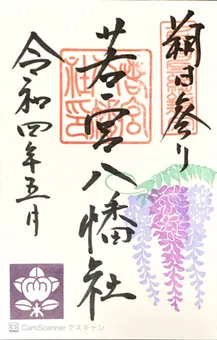 朔日参り
若宮八幡社
令和四年五月
CamScannerでスキャン